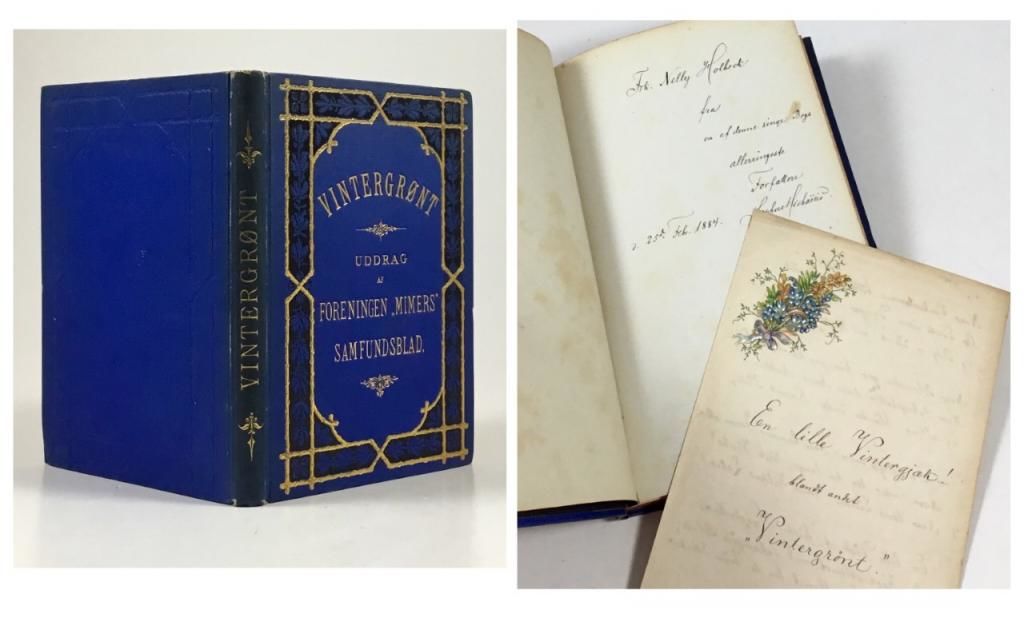 VINTERGRØNT
VINTERGRØNT
UDDRAG
AF
FORENINGEN „MIMERS"
SAMFUNDSBLAD.
Frk. Nelly Holbeck
fra
en af denne ringe Bogs
allerringeste
Forfattere
d. 25de Feb. 1884.
En lille Vintergjæk!
blandt andet
„Vintergrönt."